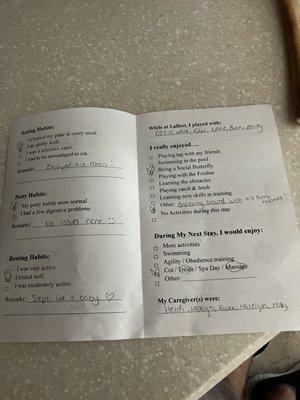 Eating Habits:
I cleaned my plate at every meal.
I ate pretty well.
I was a selective eater.
I had to be encouraged to eat.
Remarks: Enjoyed his meals!
Potty Habits:
My potty habits were normal
I had a few digestive problems
Remarks: No issues here
Resting Habits:
I was very active.
I rested well.
I was moderately active.
Remarks: Slept like a baby ♡
While at LaBest, I played with:
I really enjoyed....
Playing tag with my friends
Swimming in the pool
Being a Social Butterfly
Playing with the Frisbee
Learning the obstacles
Playing catch & fetch
Learning new skills in training
Other: around with his
No Activities during this stay
During My Next Stay, I would enjoy:
More activities
Swimming
Agility / Obedience training
Cot / Treats / Spa Day / Massage
Other:
My Caregiver(s) were:
Heidi, Haleigh, Kylee, Haleigh, Molly